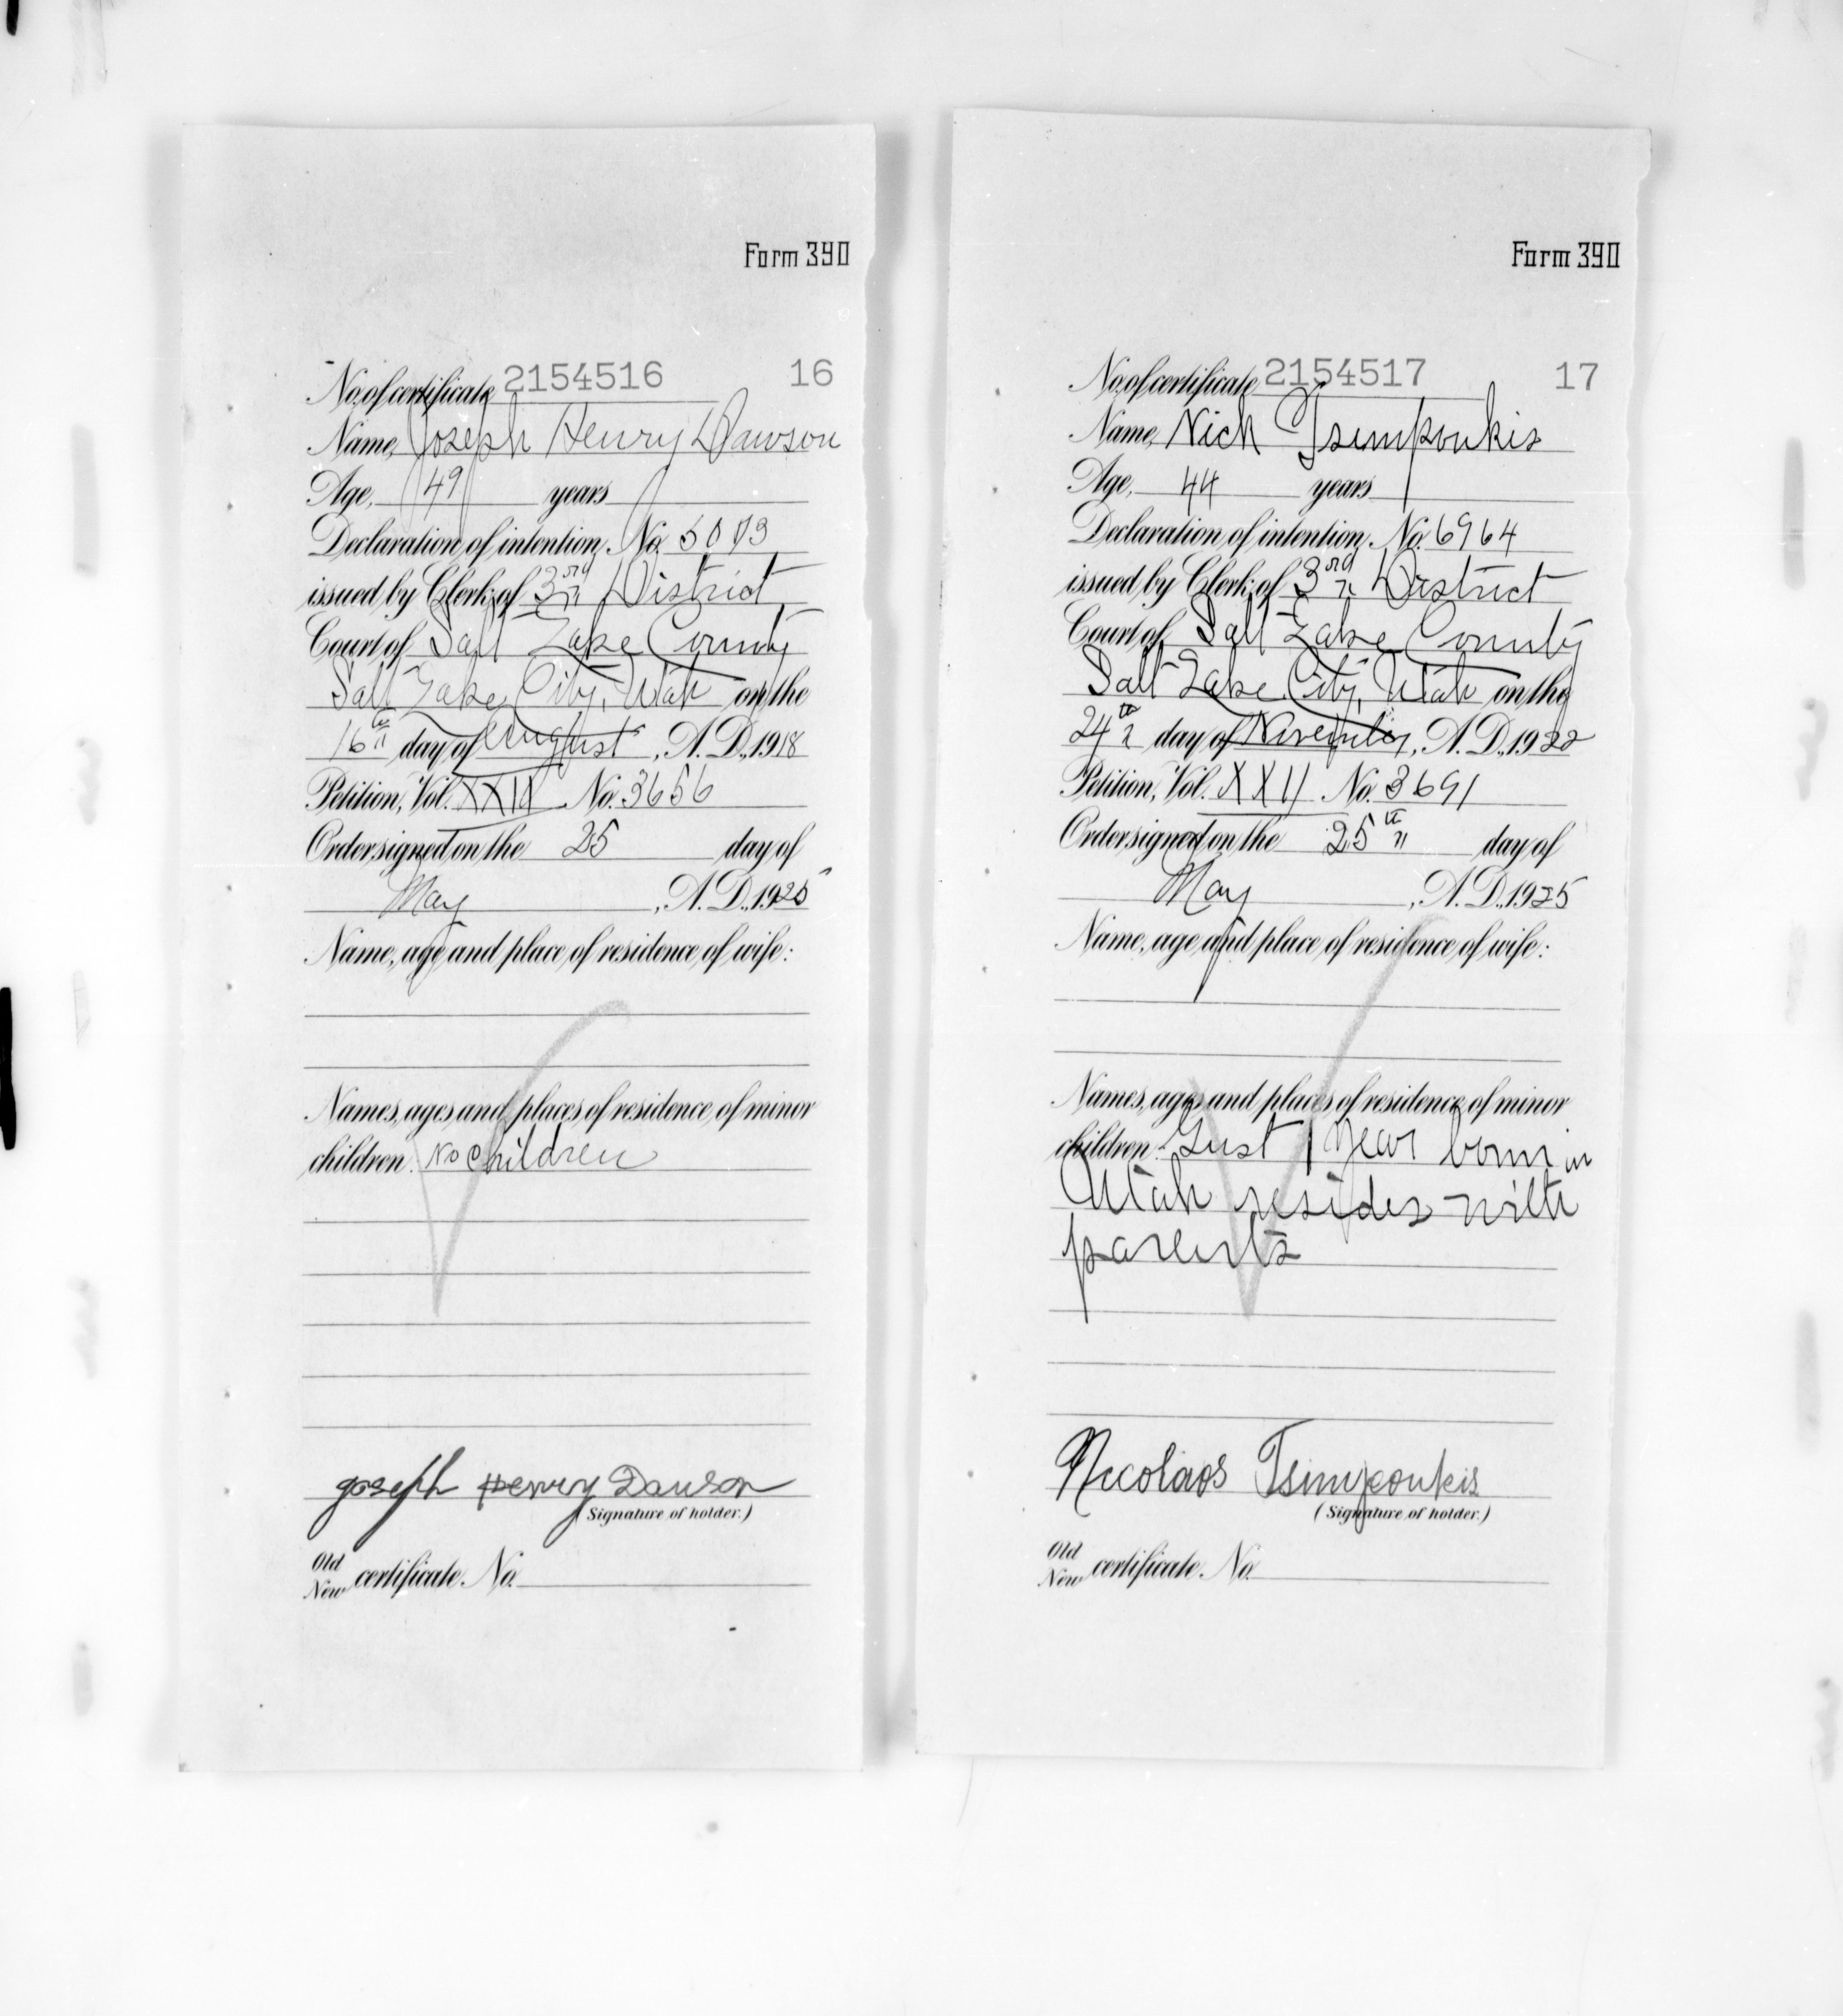 Form 390
No. of certificate 2154516 16
Name, Joseph Henry Dawson
Age, 49 years
Declaration of intention, No. 5073
issued by Clerk of 3rd District
Court of Salt Lake County
Salt Lake City, Utah on the
16th day of August, A. D., 1918
Petition, Vol. XXII No. 3656
Order signed on the 25 day of
May, A. D., 1925
Name, age and place of residence of wife:
Names, ages and places of residence of minor
children. No children
Joseph Henry Dawson
(Signature of holder.)
Old
New certificate No.
Form 390
No. of certificate 2154517 17
Name, Nick Tsimpoukis
Age, 44 years
Declaration of intention, No. 6964
issued by Clerk of 3rd District
Court of Salt Lake County
Salt Lake City, Utah on the
24th day of November, A. D., 1922
Petition, Vol. XXII No. 3691
Order signed on the 25th day of
May, A. D., 1925
Name, age and place of residence of wife:
Names, ages and places of residence of minor
children. Gust 1 year born in
Utah resides with
parents
Nicolaos Tsimpoukis
(Signature of holder.)
Old
New certificate No.